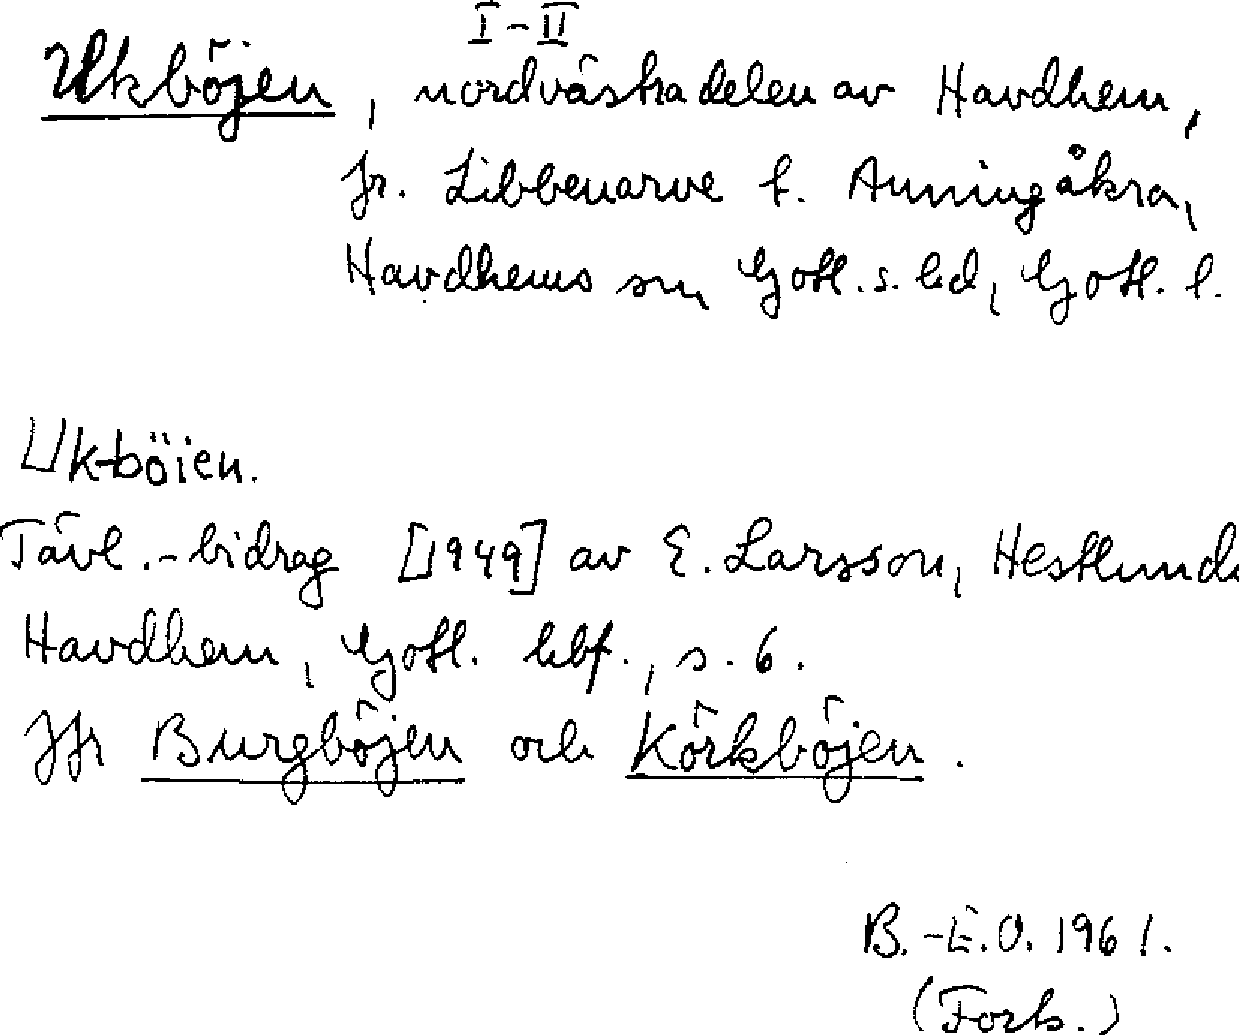 I-II
Ukböjen, nordvästra delen av Havdhem,
fr. Libbenarve t. Anningåkra,
Havdhems sn, Gotl. s. hd, Gotl. l.
Uk-böien.
Tävl.-bidrag [1949] av E. Larsson, Hestlunds
Havdhem, Gotl. hbf., s. 6.
Jfr Burgböjen och Körkböjen.
B.-E.O. 1961.
(Forts.)